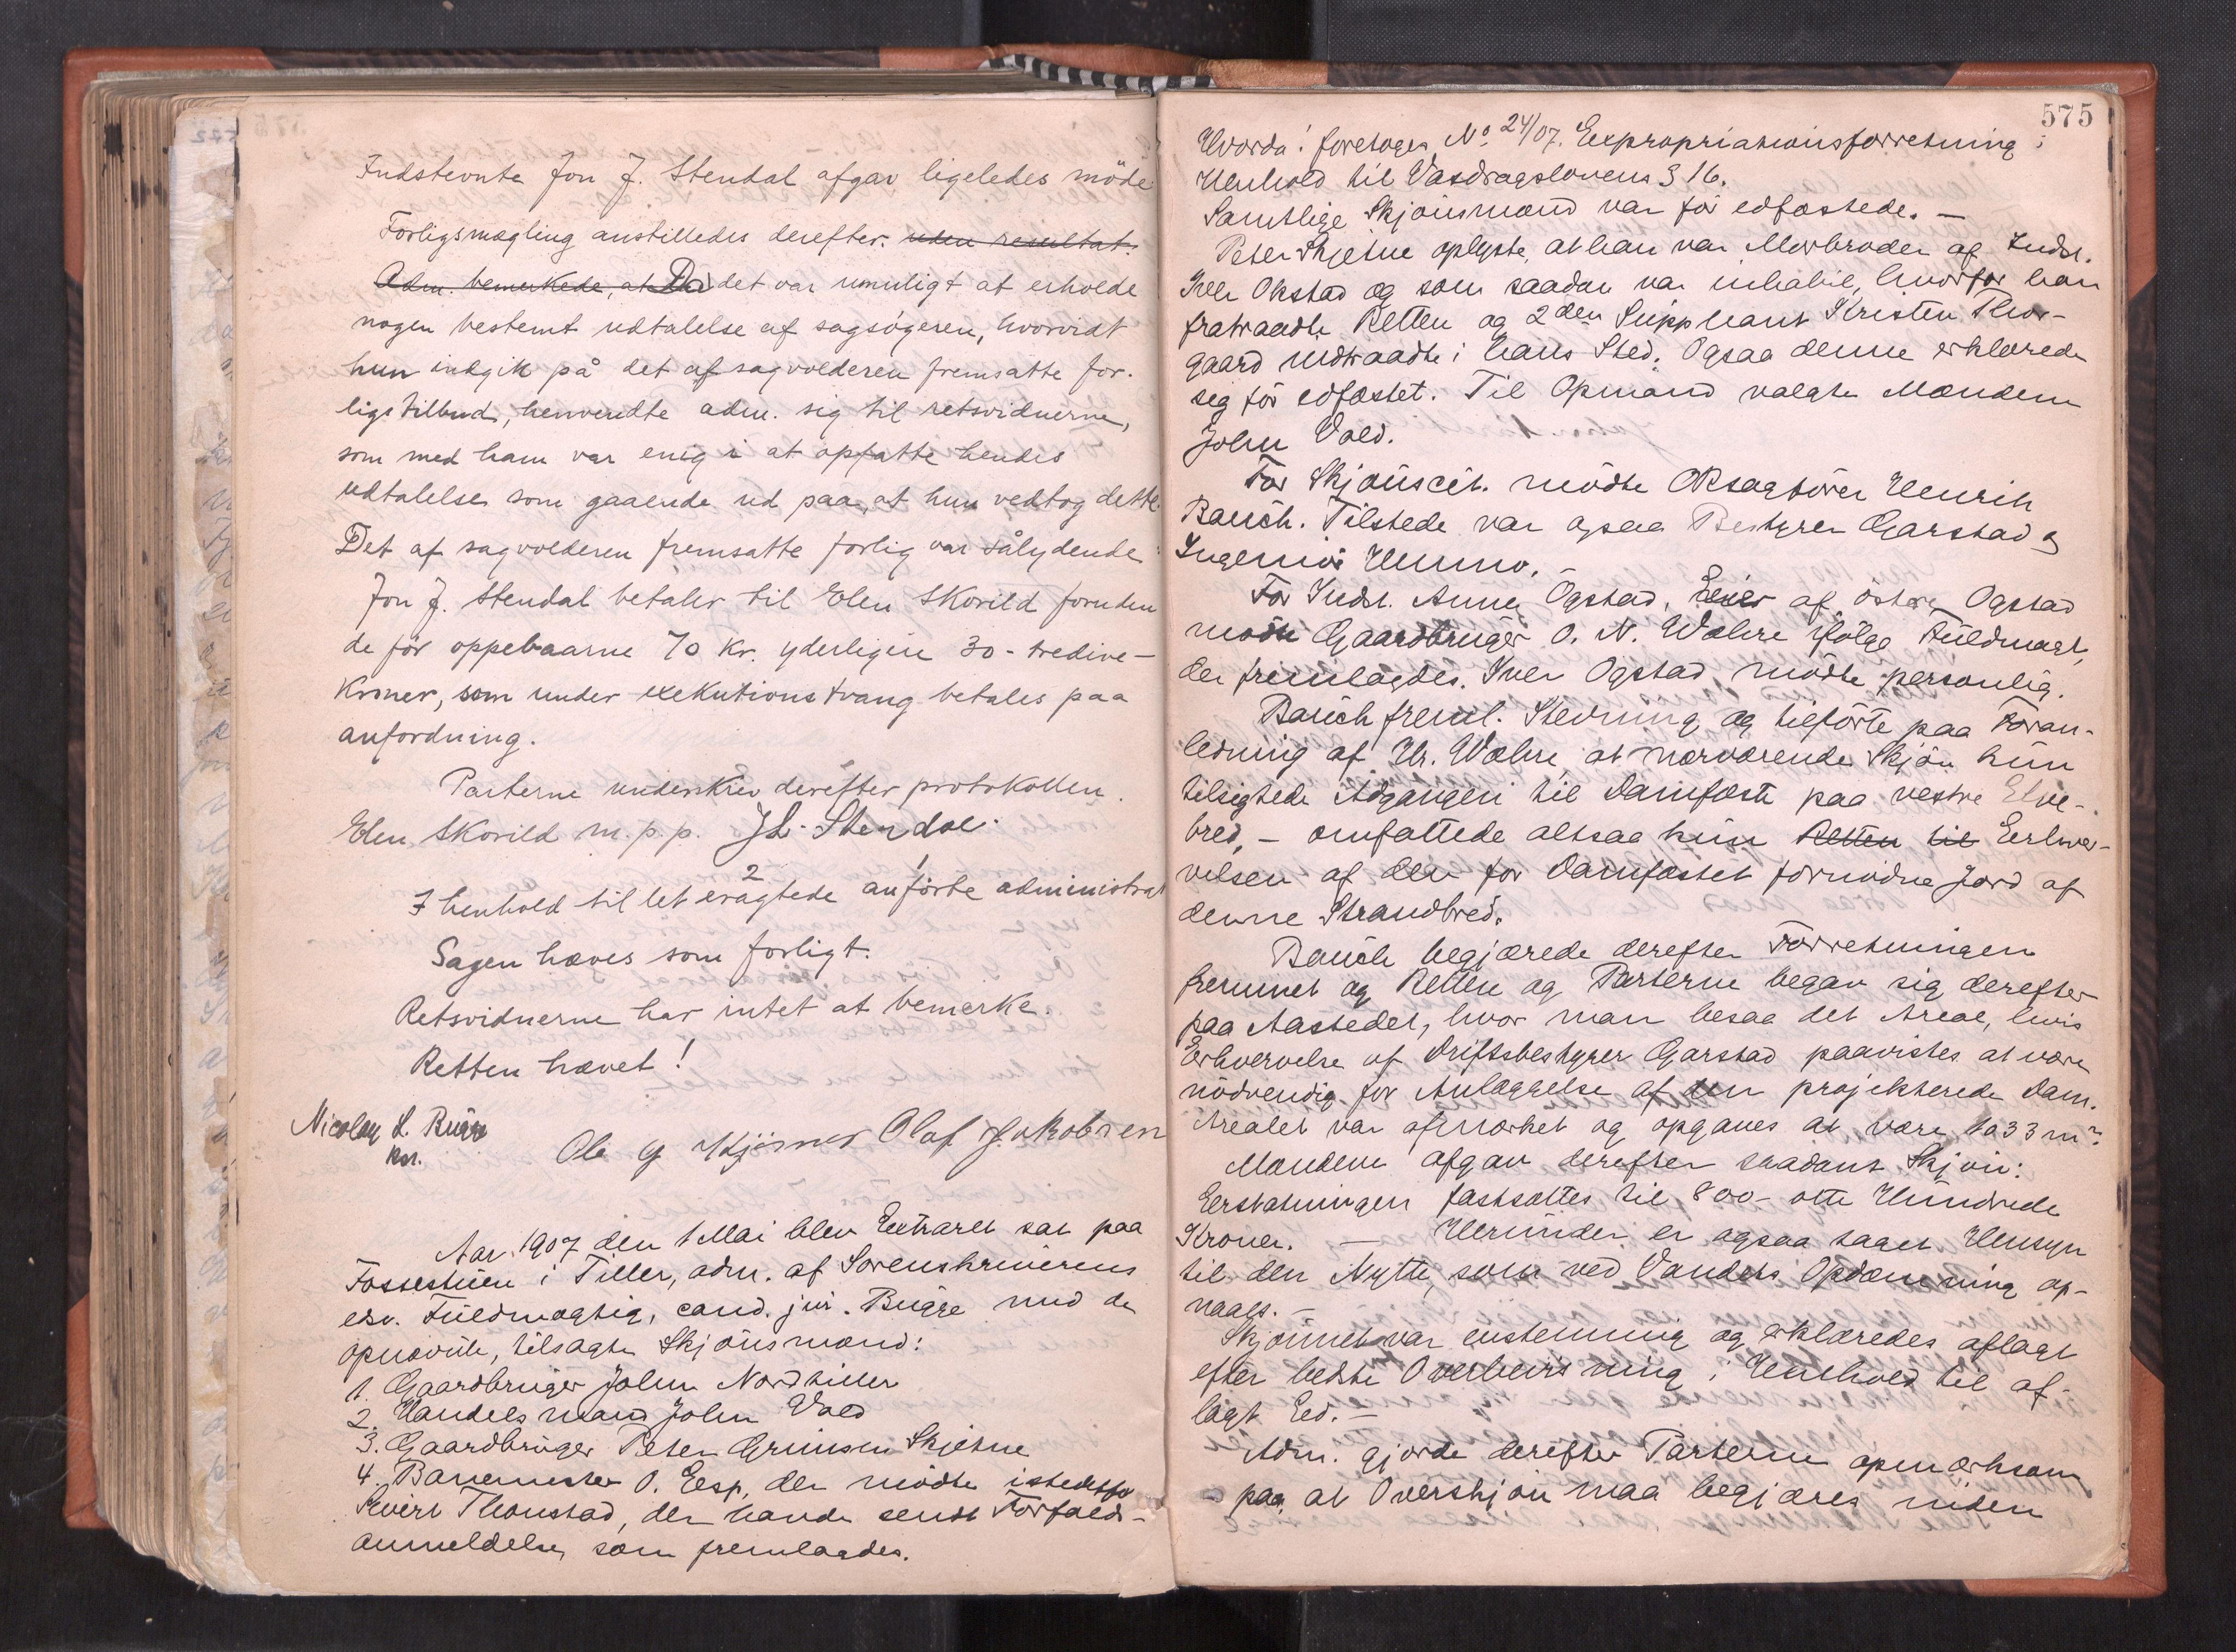 Indstevnte Jon J. Stendal afgav ligeledes møde
Forligsmægling anstilledes derefter. uden resultat.
Adm. bemerkede, at Da det var umuligt at erholde
nogen bestemt udtalelse af sagsøgeren, hvorvidt
hun indgik på det af sagvolderen fremsatte for-
ligstilbud, henvendte adm. sig til retsvidnerne,
som med ham var enig i at opfatte hendes
udtalelse som gaaende ud paa, at hun vedtog dette.
Det af sagvolderen fremsatte forlig var sålydende:
Jon J. Stendal betaler til Elen Skorild foruden
de før oppebaarne 70 kr. yderligere 30 - tredive -
Kroner, som under exekutionstvang betales paa
anfordring.
Parterne underskrev derefter protokollen.
Elen Skorild m. p. p. J L. Stendal.
I henhold til let eragtede 2 anførte 1 administrat
Sagen hæves som forligt.
Retsvidnerne har intet at bemerke.
Retten hævet!
Nicolay L. Bugge
kst.
Ole G Kjøsnes Olaf Jakobsen
Aar 1907 den 1 Mai blev Extraret sat paa
Fossestuen i Tiller, adm. af Sorenskriverens
esv. Fuldmægtig, cand. jur. Bugge med de
opnævnte, tilsagte Skjønsmænd:
1. Gaardbruger John Nordtiller
2. Handelsmand John Vold
3. Gaardbruger Peter Grimsen Skjetne
4. Banemester O. Eesp, der mødte istedetfor
Sivert Thonstad, der havde sendt Forfalds-
anmeldelse, som fremlagdes.
575
Hvorda! foretoges No. 24/07. Expropriationsforretning i
Henhold til Vasdragslovens § 16.
Samtlige Skjønsmænd var før edfæstede. -
Peter Skjetne oplyste, at han var Morbroder af Indst.
Iver Okstad og som saadan var inhabil, hvorfor han
fratraadte Retten og 2den Suppleant Kristen Thor-
gaard indtraadte i hans Sted. Ogsaa denne erklærede
sig før edfæstet. Til Opmand valgte Mændene
John Vold.
For Skjønscit. mødte ORsagfører Henrik
Bauch. Tilstede var ogsaa Bestyrer Garstad og
Ingeniør Hemmo. -
For Indst. Anne Ogstad, Eier af østre Ogstad
mødte Gaardbruger O. N. Wæhre ifølge Fuldmagt,
der fremlagdes. Iver Ogstad mødte personlig.
Bauch freml. Stevning og tilførte paa Foran-
ledning af Hr. Wæhre, at nærværende Skjøn kun
tilsigtede Adgangen til Damfæste paa vestre Elve-
bred, - omfattede altsaa kun Retten til Erhver-
velsen af den for Damfæstet fornødne Jord af
denne Strandbred.
Bauch begjærede derefter Forretningen
fremmet og Retten og Parterne begav sig derefter
paa Aastedet, hvor man besaa det Areal, hvis
Erhvervelse af Driftsbestyrer Garstad paavistes at være
nødvendig for Anlæggelse af den projekterede Dam.
Arealet var afmærket og opgaves at være 1033 m².
Mændene afgav derefter saadant Skjøn:
Erstatningen fastsættes til 800 - otte Hundrede
Kroner. - Herunder er ogsaa taget Hensyn
til den Nytte, som ved Vandets Opdæmning op-
naaes. -
Skjønnet var enstemmig og erklæredes aflagt
efter bedste Overbevisning i Henhold til af-
lagt Ed. -
Adm. gjorde derefter Parterne opmærksom
paa, at Overskjøn maa begjæres inden